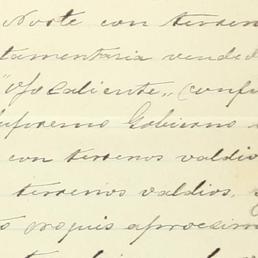 Norte con terren
tamentaria vended
"Ojo Caliente", (conf
upremo Gobierno
con terrenos valdio
terrenos valdios,
propis aprocsim